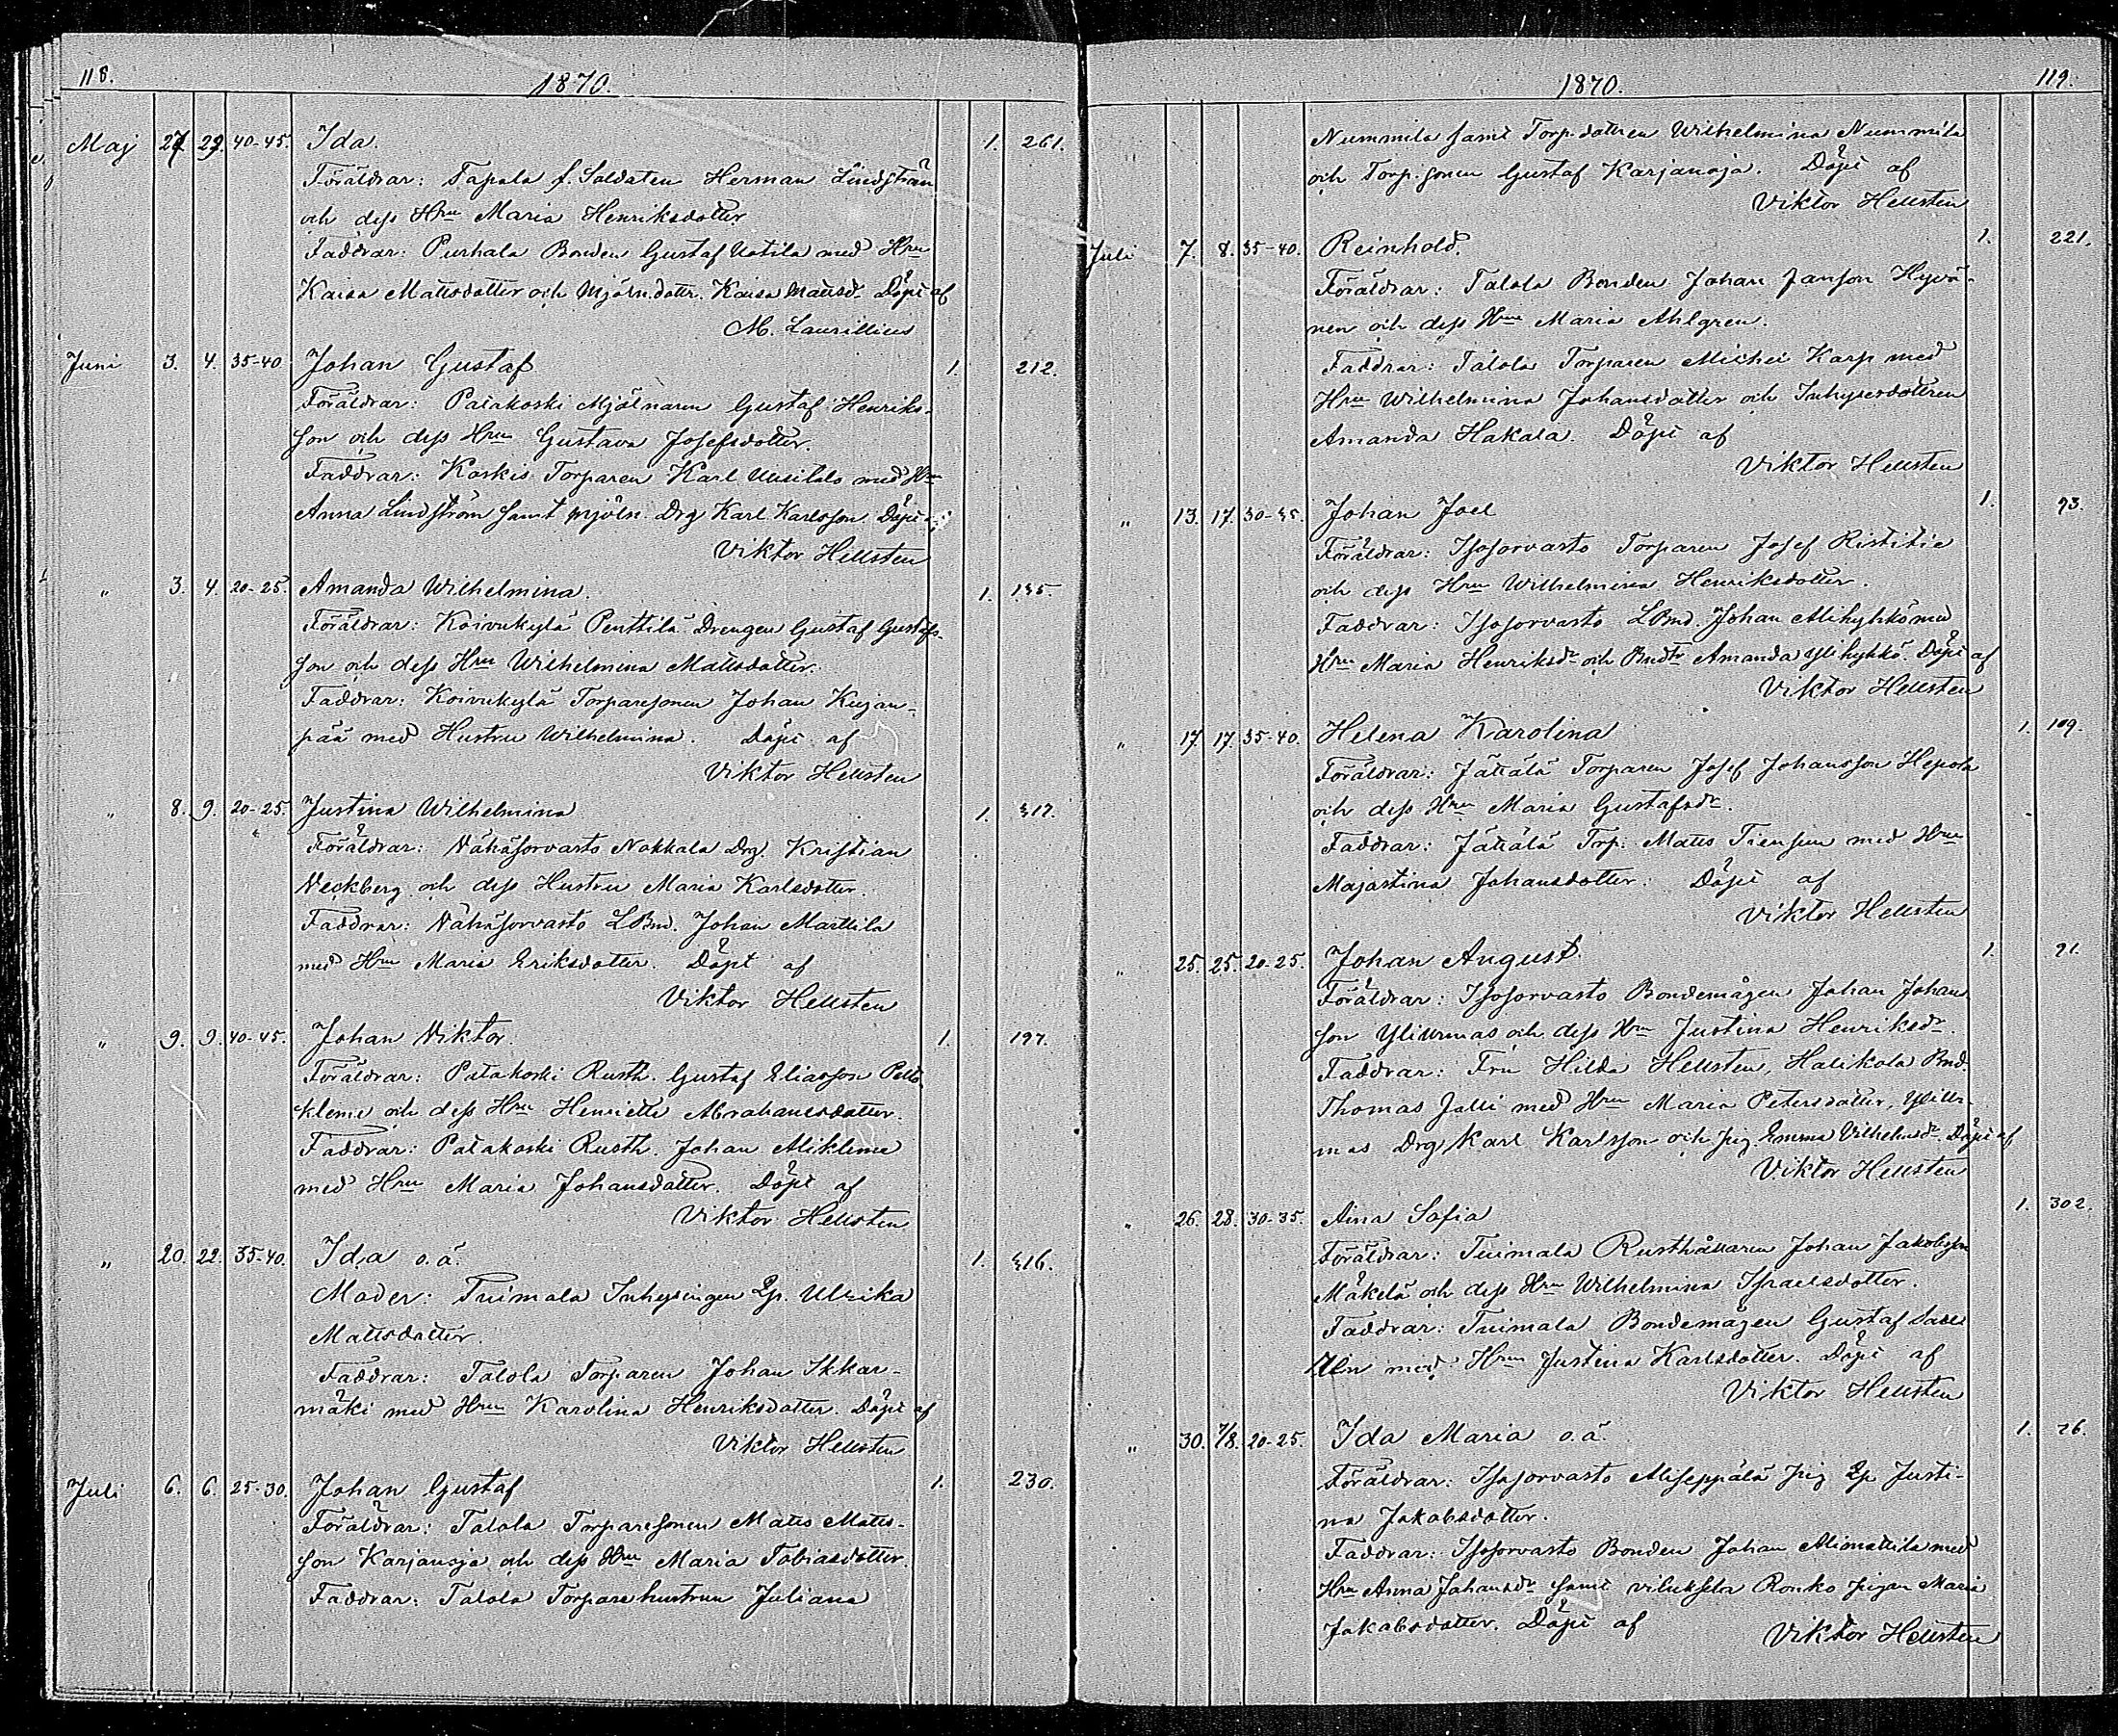 118.
1870.
Maj 27 29. 40-45. Ida. 1. 261.
Föräldrar: Tapala f. Soldaten Herman Lindström
och dess Hru Maria Henriksdotter.
Faddrar: Purhala Bonden Gustaf Uotila med Hru
Kaisa Mattsdotter och Mjöln.dottr. Kaisa Mattsd. Döpt af
M. Laurillius
Juni 3. 4. 35-40 Johan Gustaf 1. 212.
Föräldrar: Patakoski Mjölnaren Gustaf Henriks-
son och dess Hru Gustava Josefsdotter.
Faddrar: Koskis Torparen Karl Uusitalo med Hru
Anna Lindström samt mjöln. Drg Karl Karlsson. Döpt
Viktor Hellsten
" 3. 4. 20-25. Amanda Wilhelmina. 1. 135.
Föräldrar: Koivukylä Penttilä Drengen Gustaf Gustafs-
son och dess Hru Wilhelmina Mattsdotter.
Faddrar: Koivukylä Torparesonen Johan Kujan-
pää med Hustru Wilhelmina. Döpt af
Viktor Hellsten
" 8. 9. 20-25. Justina Wilhelmina 1. 317.
Föräldrar: Vähäsorvasto Nokkala Drg. Kristian
Veckberg och dess Hustru Maria Karlsdotter.
Faddrar: Vähäsorvasto LBnd. Johan Marttila
med Hru Maria Eriksdotter. Döpt af
Viktor Hellsten
" 9. 9. 40-45. Johan Viktor. 1. 197.
Föräldrar: Patakoski Rusth. Gustaf Eliasson Pello
kleme och dess Hru Henriette Abrahamsdotter.
Faddrar: Patakoski Rusth. Johan Alikleme
med Hru Maria Johansdotter. Döpt af
Viktor Hellsten
" 20. 22. 35-40. Ida o.ä. 1. 316.
Moder: Tuimala Inhysingen Lp. Ulrika
Mattsdotter.
Faddrar: Talola Torparen Johan Ikkar-
mäki med Hru Karolina Henriksdotter. Döpt af
Viktor Hellsten
Juli 6. 6. 25-30. Johan Gustaf 1. 230.
Föräldrar: Talola Torparesonen Matts Matts-
son Karjanoja och dess Hru Maria Tobiasdotter.
Faddrar: Talola Torparehustrun Juliana
1870.
119.
Nummila samt Torp.dottren Wilhelmina Nummila
och Torp.sonen Gustaf Karjanoja. Döpt af
Viktor Hellsten
Juli 7. 8. 35-40. Reinhold. 1. 221.
Föräldrar: Talola Bonden Johan Janson Hyvö-
nen och dess Hru Maria Ahlgren.
Faddrar: Talola Torparen Michel Karp med
Hru Wilhelmina Johansdotter och Inhysesdottren
Amanda Hakala. Döpt af
Viktor Hellsten
" 13. 17. 30-35. Johan Joel 1. 93.
Föräldrar: Isosorvasto Torparen Josef Ristitie
och dess Hru Wilhelmina Henriksdotter.
Faddrar: Isosorvasto LBnd. Johan Alihyhkö med
Hru Maria Henriksdr och Bndtr Amanda Ylihyhkö. Döpt af
Viktor Hellsten
" 17. 17. 35-40. Helena Karolina 1. 109.
Föräldrar: Jättälä Torparen Josef Johansson Hepola
och dess Hru Maria Gustafsdr.
Faddrar: Jättälä Torp. Matts Tiensuu med Hru
Majastina Johansdotter. Döpt af
Viktor Hellsten
" 25. 25. 20-25. Johan August. 1. 91.
Föräldrar: Isosorvasto Bondemågen Johan Johan
son Yliurmas och dess Hru Justina Henriksdr.
Faddrar: Fru Hilda Hellsten, Halikola Bnd.
Thomas Jalli med Hru Maria Petersdotter, Yliur-
mas Drg Karl Karlsson och Pig. Emma Vilhelmsdr. Döpt af
Viktor Hellsten
" 26. 28. 30-35. Aina Sofia 1. 302.
Föräldrar: Tuimala Rusthållaren Johan Jakobsson
Mäkelä och dess Hru Wilhelmina Israelsdotter.
Faddrar: Tuimala Bondemågen Gustaf
med Hru Justina Karlsdotter. Döpt af
Viktor Hellsten
" 30. 7/8. 20-25. Ida Maria o.ä. 1. 76.
Föräldrar: Isosorvasto Aliseppälä Pig Lp Justi-
na Jakobsdotter.
Faddrar: Isosorvasto Bonden Johan Alimattila med
Hru Anna Johansdr samt Viluksela Ronko Pigan Maria
Jakobsdotter. Döpt af Viktor Hellsten